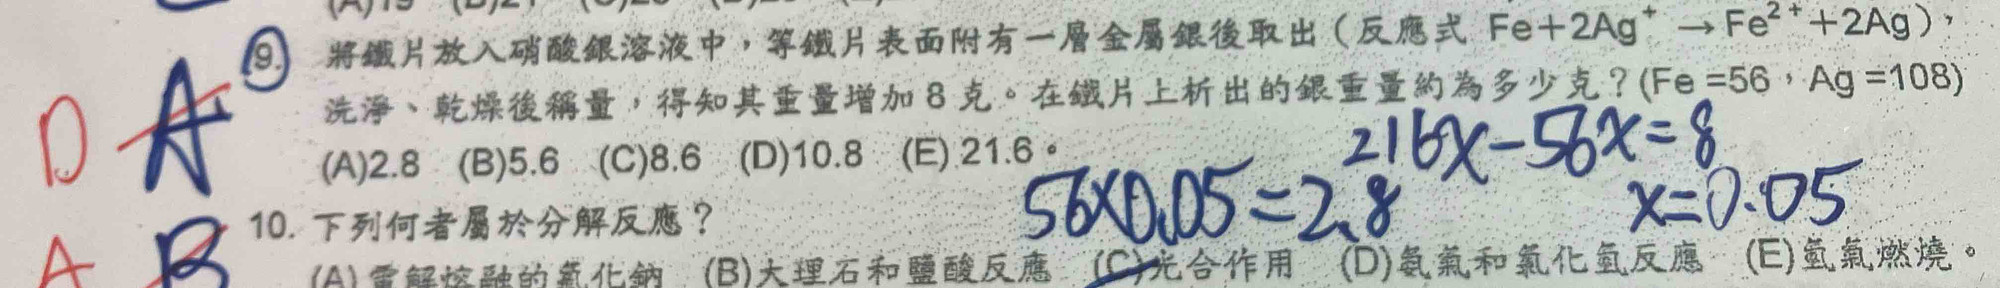 9. 將鐵片放入硝酸銀溶液中，等鐵片表面附有一層金屬銀後取出（反應式 Fe+2Ag⁺ → Fe²⁺+2Ag），
洗淨、乾燥後稱量，得知其重量增加 8 克。在鐵片上析出的銀重量約為多少克？(Fe =56，Ag =108)
D A
(A)2.8 (B)5.6 (C)8.6 (D)10.8 (E) 21.6。
216x-56x=8
56×0.05=2.8
x=0.05
10. 下列何者屬於分解反應？
A B
(A)電解熔融的氯化鈉 (B)大理石和鹽酸反應 (C)光合作用 (D)氨氣和氯化氫反應 (E)氫氣燃燒。